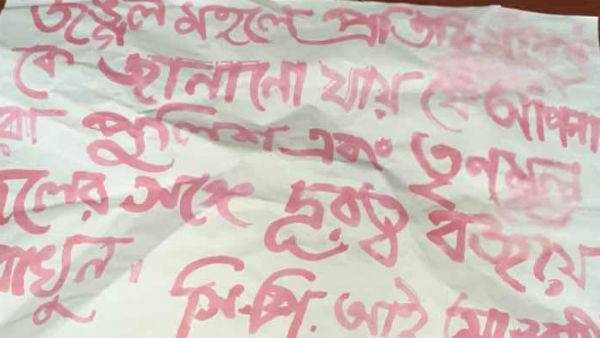 জঙ্গল মহলে প্রতিটি মানুষ
কে জানানো যায় যে আপনা
রা পুলিশ এবং তৃণমূল
দলের সঙ্গে দূরত্ব বজায়
রাখুন।
সি.পি. আই মাওবাদী